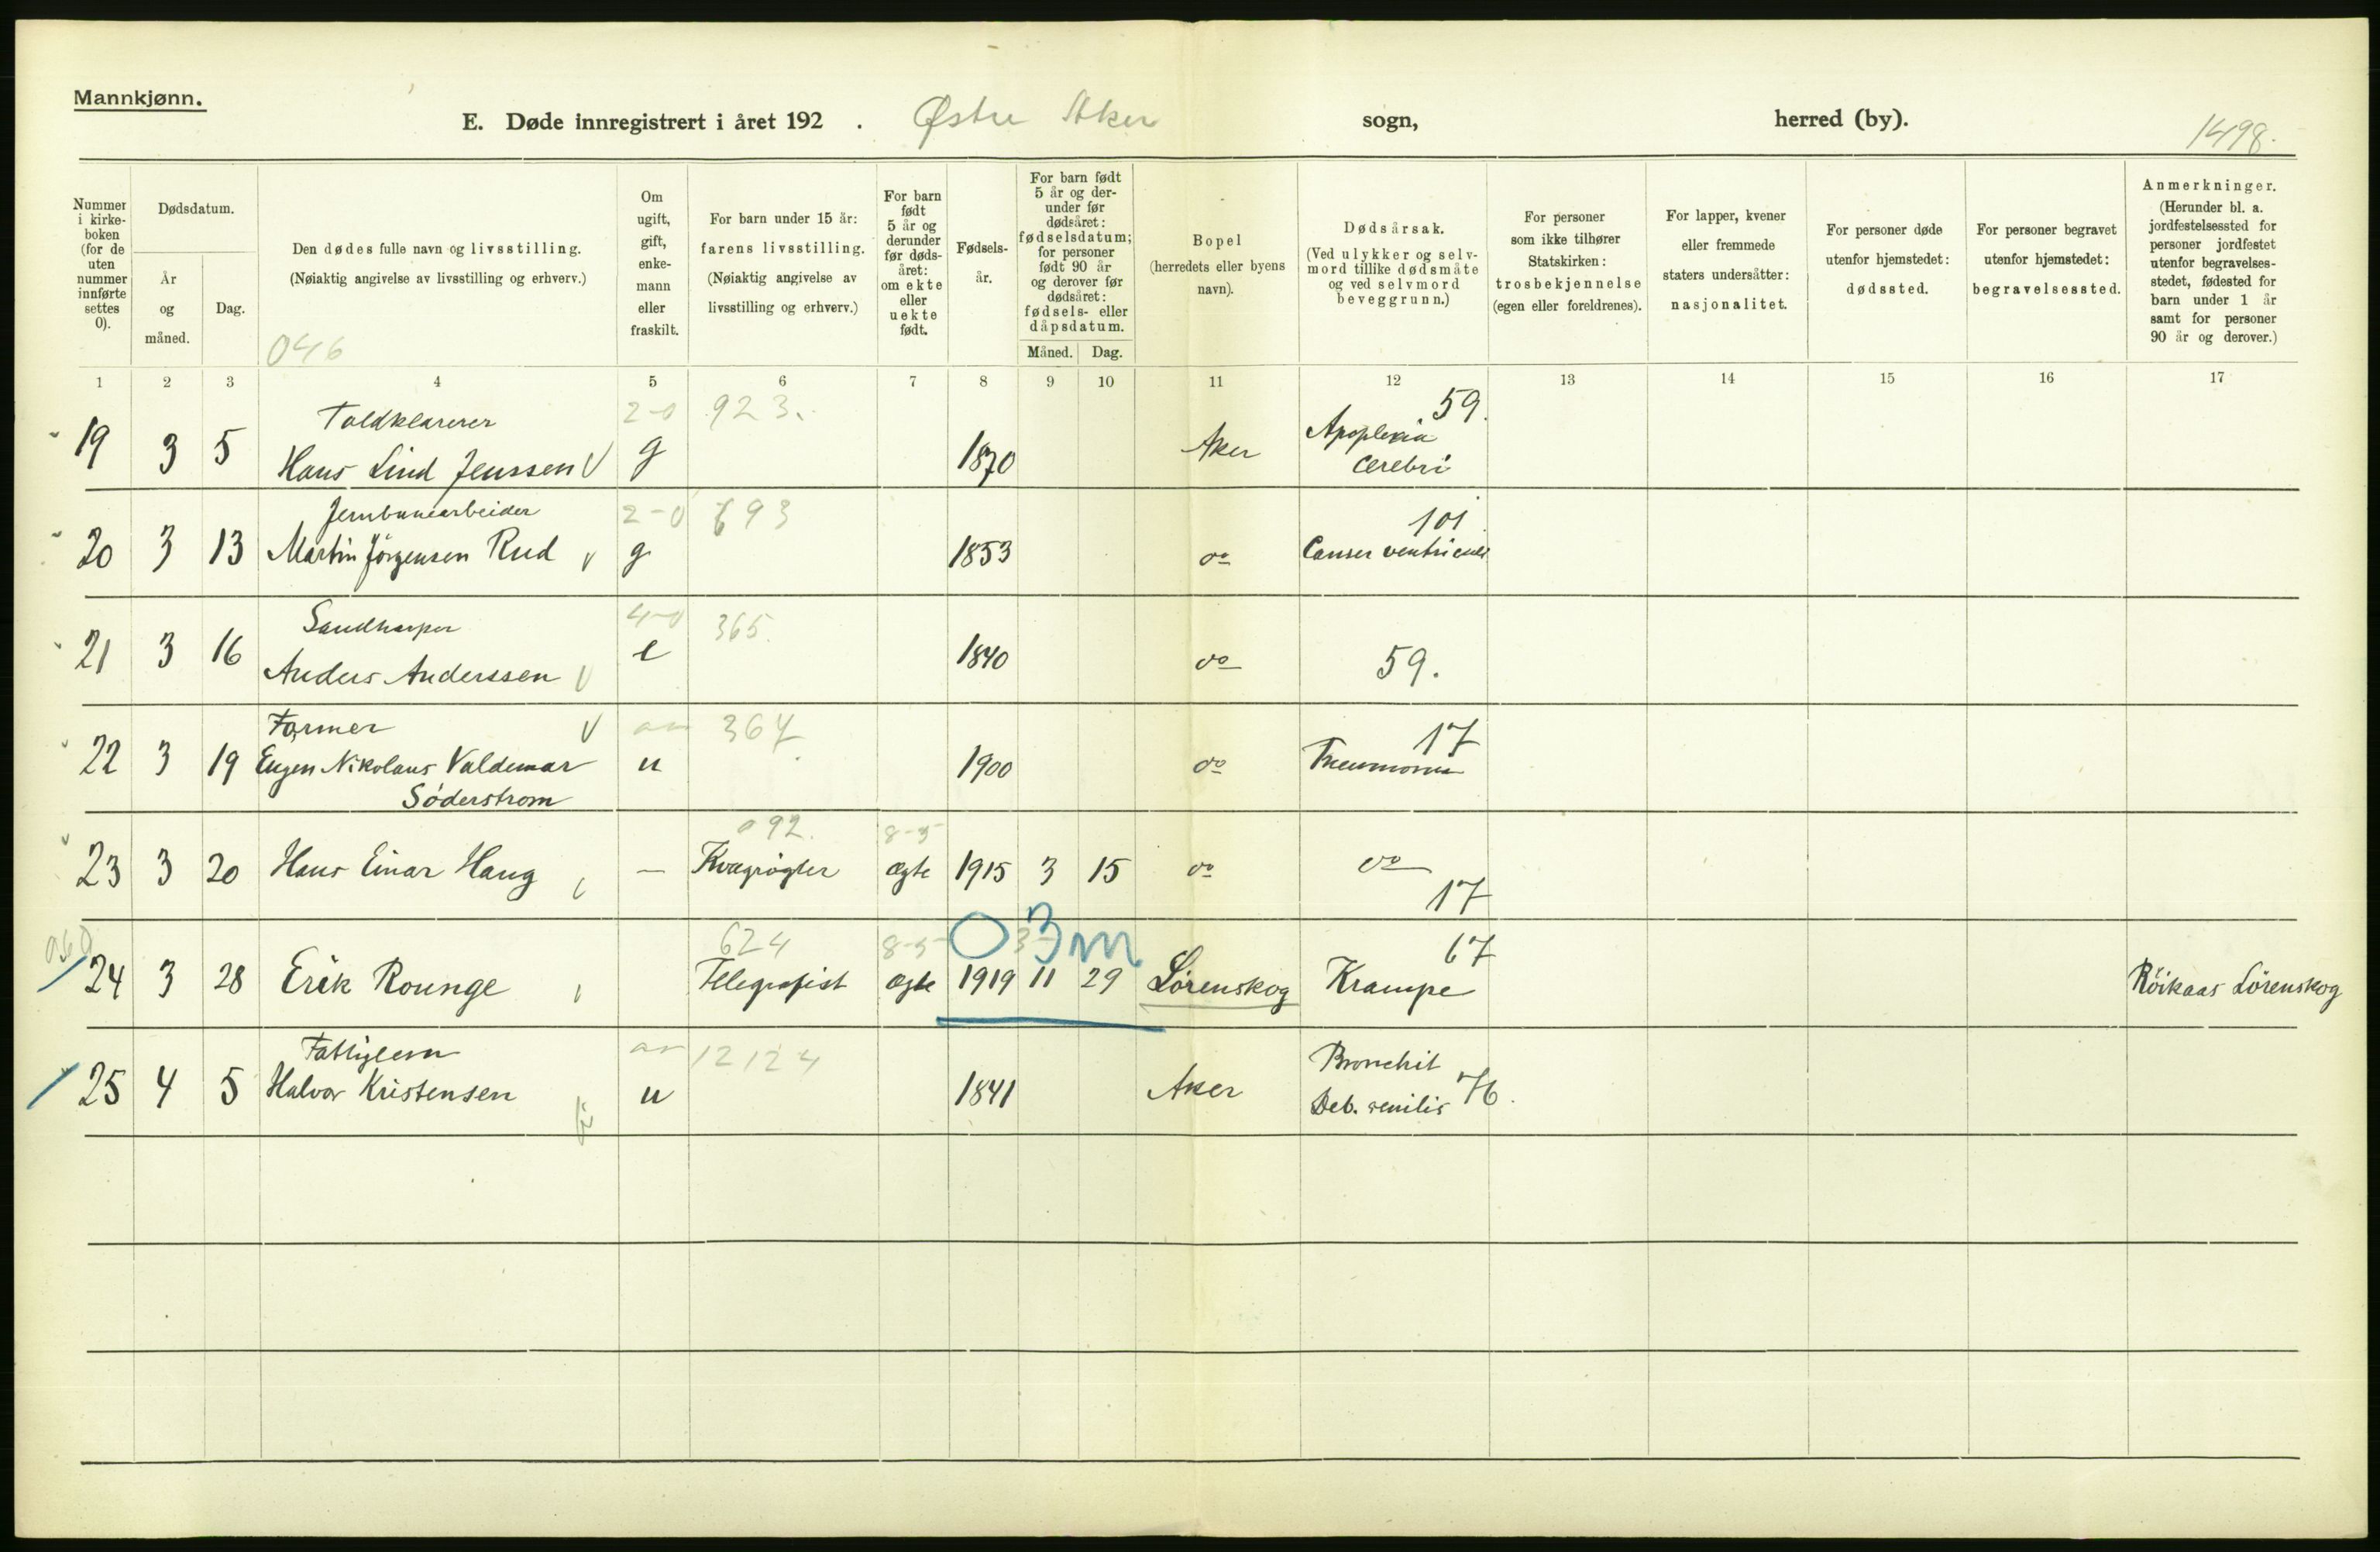 Mannkjønn.
E. Døde innregistrert i året 192 . Østre Aker sogn, herred (by).
1498.
Nummer i kirkeboken (for de uten nummer innførte settes 0).
Dødsdatum.
År og måned.
Dag.
Den dødes fulle navn og livsstilling.
(Nøiaktig angivelse av livsstilling og erhverv.)
046
Om ugift, gift, enkemann eller fraskilt.
For barn under 15 år: farens livsstilling.
(Nøiaktig angivelse av livsstilling og erhverv.)
For barn født 5 år og derunder før dødsåret: om ekte eller uekte født.
Fødselsår.
For barn født 5 år og derunder før dødsåret: fødselsdatum; for personer født 90 år og derover før dødsåret: fødsels- eller dåpsdatum.
Måned. Dag.
Bopel (herredets eller byens navn).
Dødsårsak.
(Ved ulykker og selvmord tillike dødsmåte og ved selvmord beveggrunn.)
For personer som ikke tilhører Statskirken: trosbekjennelse (egen eller foreldrenes).
For lapper, kvener eller fremmede staters undersåtter: nasjonalitet.
For personer døde utenfor hjemstedet: dødssted.
For personer begravet utenfor hjemstedet: begravelsessted.
Anmerkninger.
(Herunder bl. a. jordfestelsessted for personer jordfestet utenfor begravelsesstedet, fødested for barn under 1 år samt for personer 90 år og derover.)
1 2 3 4 5 6 7 8 9 10 11 12 13 14 15 16 17
Toldklarerer 2-0 923. 59.
19 3 5 Hans Lind Jenssen g 1870 Aker Apoplexia cerebri
Jernbanearbeider 2-0 693 101
20 3 13 Martin Jörgensen Rud g 1853 do Canser ventriculi
Sandharper 4-0 365.
21 3 16 Anders Anderssen e 1840 do 59.
Farmer 367 17
22 3 19 Eugen Nikolaus Valdemar u 1900 do Pneumoni
Söderstrom
092. 8-5
23 3 20 Hans Einar Haug — Kvægrøgter ægte 1915 3 15 do do
17
624 8-5 0 3 m 67
24 3 28 Erik Rounge Telegrafist ægte 1919 11 29 Lörenskog Krampe Röikaas Lörenskog
Fattiglem 12124 Bronchit
25 4 5 Halvor Kristensen u 1841 Aker Deb. senilis 76.